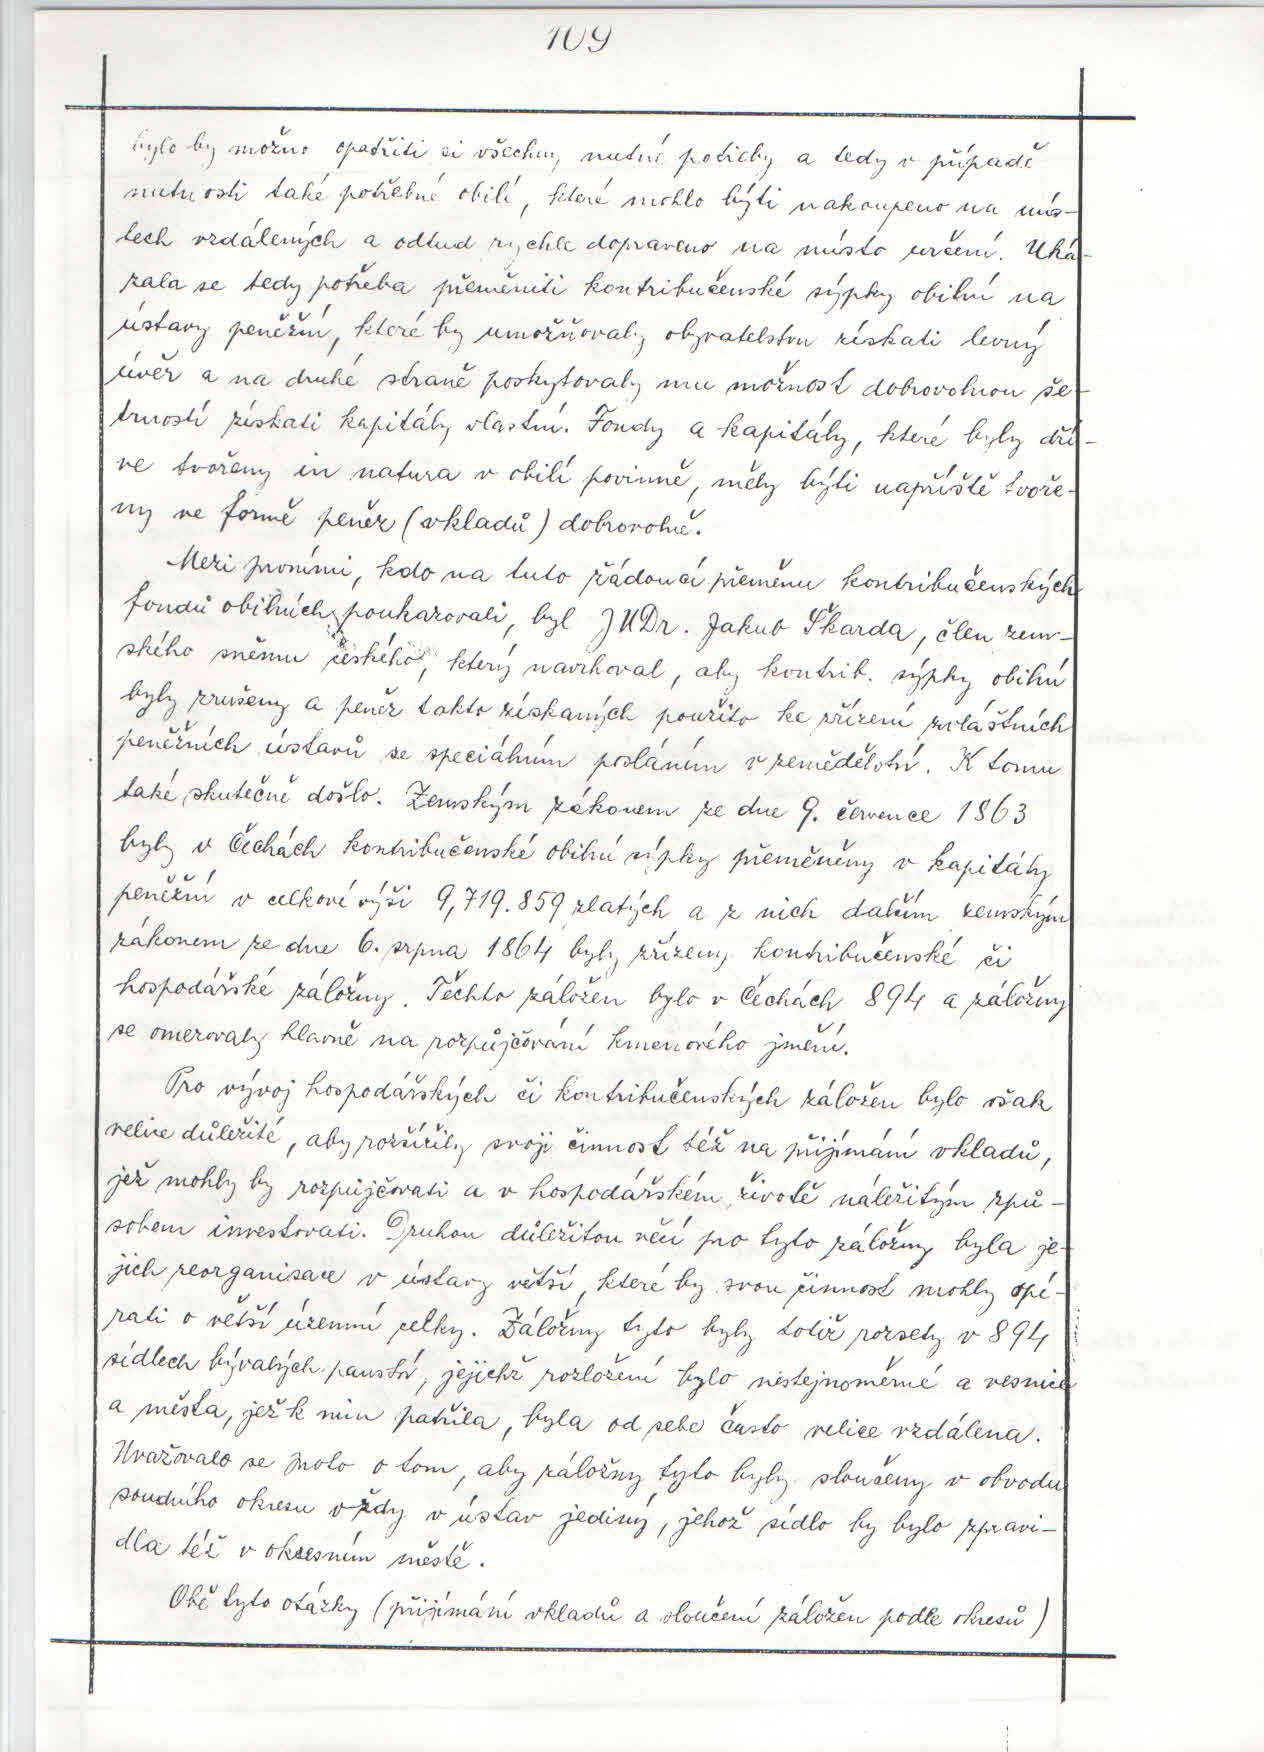 109
bylo by možno opatřiti si všechny nutné potřeby a tedy v případě
nutnosti také potřebné obilí, které mohlo býti nakoupeno na mís-
tech vzdálených a odtud rychle dopraveno na místo určení. Uká-
zala se tedy potřeba přeměniti kontribučenské sýpky obilní na
ústavy peněžní, které by umožňovaly obyvatelstvu získati levný
úvěr a na druhé straně poskytovaly mu možnost dobrovolnou še-
trností získati kapitály vlastní. Fondy a kapitály, které byly dří-
ve tvořeny in natura v obilí povinně, měly býti napříště tvoře-
ny ve formě peněz (vkladů) dobrovolně.
Mezi prvními, kdo na tuto žádoucí přeměnu kontribučenských
fondů obilních poukazovali, byl JUDr. Jakub Škarda, člen zem-
ského sněmu českého, který navrhoval, aby kontrib. sýpky obilní
byly zrušeny a peněz takto získaných použito ke zřízení zvláštních
peněžních ústavů se speciálním posláním v zemědělství. K tomu
také skutečně došlo. Zemským zákonem ze dne 9. července 1863
byly v Čechách kontribučenské obilní sýpky přeměněny v kapitály
peněžní v celkové výši 9,719.859 zlatých a z nich dalším zemským
zákonem ze dne 6. srpna 1864 byly zřízeny kontribučenské či
hospodářské záložny. Těchto záložen bylo v Čechách 894 a záložny
se omezovaly hlavně na rozpůjčování kmenového jmění.
Pro vývoj hospodářských či kontribučenských záložen bylo však
velice důležité, aby rozšířily svoji činnost též na přijímání vkladů,
jež mohly by rozpůjčovati a v hospodářském životě náležitým způ-
sobem investovati. Druhou důležitou věcí pro tyto záložny byla je-
jich reorganisace v ústavy větší, které by svou činnost mohly opí-
rati o větší územní celky. Záložny tyto byly totiž rozsety v 894
sídlech bývalých panství, jejichž rozložení bylo nestejnoměrné a vesnice
a města, jež k nim patřila, byla od sebe často velice vzdálena.
Uvažovalo se proto o tom, aby záložny tyto byly sloučeny v obvodu
soudního okresu vždy v ústav jediný, jehož sídlo by bylo zpravi-
dla též v okresním městě.
Obě tyto otázky (přijímání vkladů a sloučení záložen podle okresů)